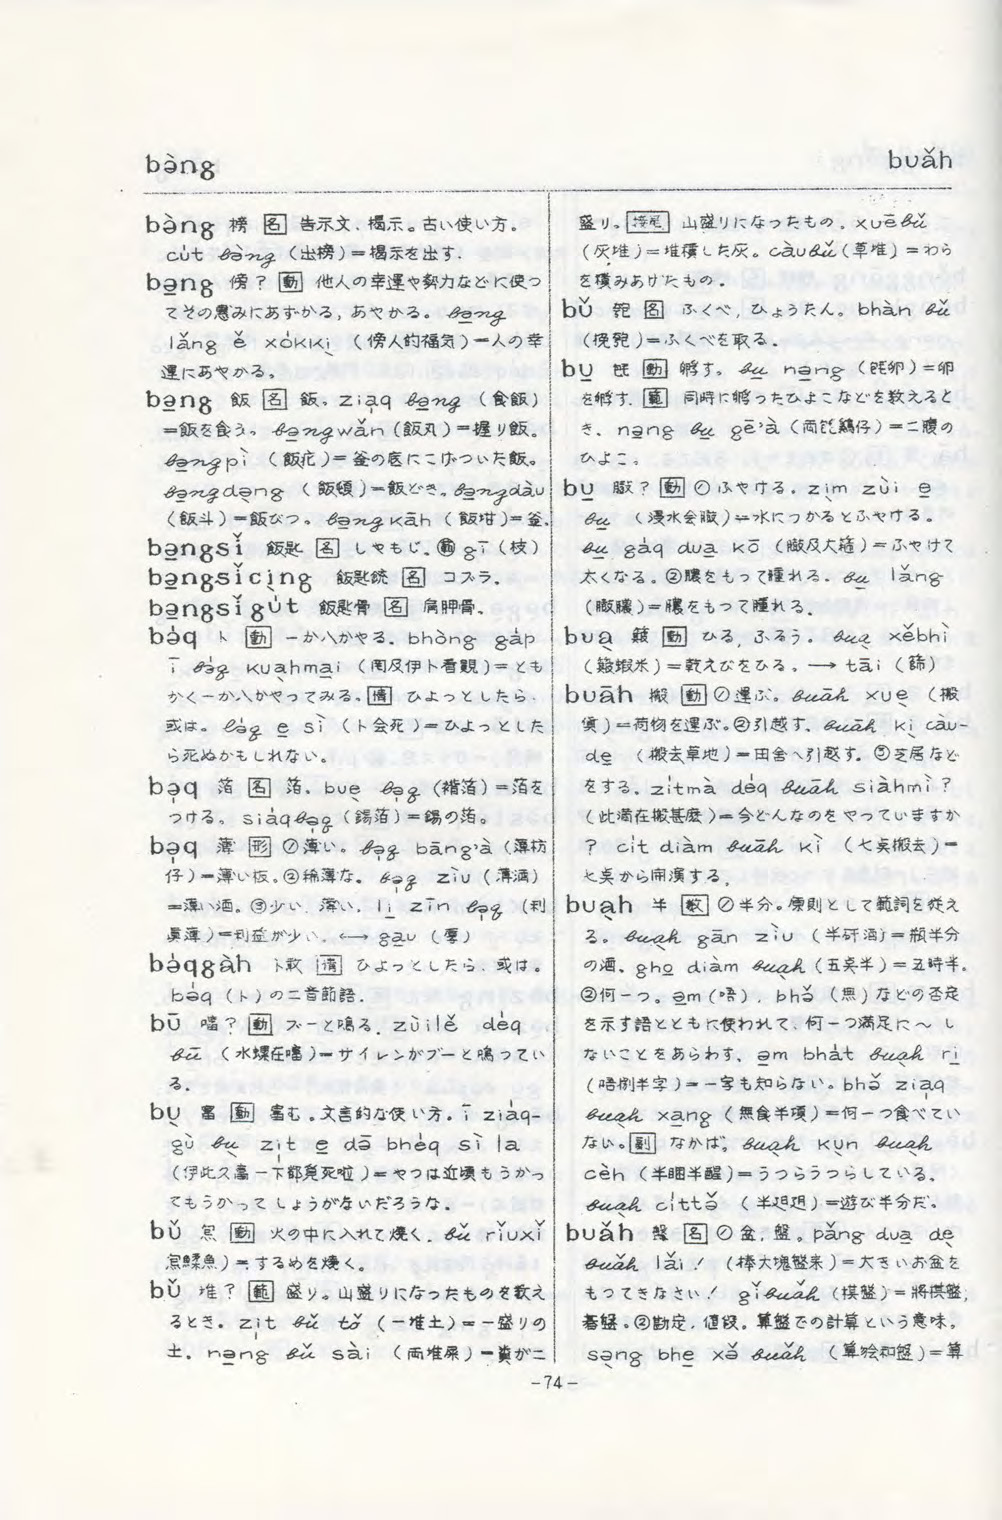 bə̀ng
buăh
bə̀ng 榜 [名] 告示文.掲示。古い使い方。
cu̍t bə̀ng (出榜)=掲示を出す.
bə̱ng 傍? [動] 他人の幸運や勢力などに便っ
てその恵みにあずかる,あやかる。bə̱ng
lăng ĕ xo̍kkị (傍人的福気)=人の幸
運にあやかる。
bə̱ng 飯 [名] 飯。ziạq bə̱ng (食飯)
=飯を食う。bə̱ngwăn (飯丸)=握り飯。
bə̱ngpì (飯疕)=釜の底にこげついた飯。
bə̱ngdə̣ng (飯頓)=飯どき。bə̱ngdàu
(飯斗)=飯びつ。bə̱ngkāh (飯坩)=釜.
bə̱ngsĭ 飯匙 [名] しゃもじ.㊩ gī (枝)
bə̱ngsĭcịng 飯匙銃 [名] コブラ.
bə̱ngsĭgu̍t 飯匙骨 [名] 肩胛骨.
bə̍q 卜 [動] 一か八かやる. bhòng ga̍p
ī bə̍q kuạhmại (罔及伊卜看観)=とも
かく一か八かやってみる。[情] ひょっとしたら.
或は。bə̍q e̱ sì (卜会死)=ひょっとした
ら死ぬかもしれない。
bə̣q 箔 [名] 箔. buẹ bə̣q (褙箔)=箔を
つける。siạqbə̣q (錫箔)=錫の箔。
bə̣q 薄 [形] ①薄い。bə̣q bāng'à (薄枋
仔)=薄い板。②稀薄な。bə̣q ziu (薄酒)
=薄い酒。③少い.薄い. li̱ zīn bə̣q (利
真薄)=利益が少い. ←→ ga̱u (厚)
bə̍qgàh 卜敢 [情] ひょっとしたら.或は。
bə̍q (卜)の二音節語.
bū 噹? [動] ブーと鳴る. zùilĕ de̍q
bū (水螺在噹)=サイレンがブーと鳴ってい
る。
bụ 富 [動] 富む。文言的な使い方。ī ziàq-
gù bụ zịt e̱ də̄ bhe̍q sì la
=やつは近頃もうかっ
てもうかってしょうがないだろうな。
bŭ [動] 火の中に入れて焼く. bŭ riuxĭ
=するめを焼く。
bŭ 堆? [範] 盛り。山盛りになったものを数え
るとき。zịt bŭ tŏ (一堆土)=一盛りの
土. nə̱ng bŭ sài (両堆屎)=糞が二
盛り。[接尾] 山盛りになったもの。xuēbŭ
(灰堆)=堆積した灰。càubŭ (草堆)=わら
を積みあげたもの.
bŭ 匏 [名] ふくべ,ひょうたん。bhàn bŭ
(挽匏)=ふくべを取る.
bu̱ [動] 孵す。bu̱ nə̱ng =卵
を孵す. [範] 同時に孵ったひよこなどを数えると
き. nə̱ng bu̱ gē'à =二腹の
ひよこ。
bu̱ [動] ①ふやける. zịm zùi e̱
bu̱ =水につかるとふやける。
bu̱ gàq dua̱ kō =ふやけて
太くなる。②膿をもって腫れる. bu̱ lăng
=膿をもって腫れる.
buạ 簸 [動] ひる,ふるう. buạ xĕbhì
(簸蝦米)=敷えびをひる。→ tāi (篩)
buāh 搬 [動] ①運ぶ。buāh xuẹ (搬
貨)=荷物を運ぶ。②引越す. buāh kị càu-
de̱ (搬去草地)=田舎へ引越す。③芝居など
をする. zítmà de̍q buāh siàhmì?
(此満在搬甚麼)=今どんなのをやっていますか
? cit diàm buāh kì (七点搬去)=
七点から開演する.
buạh 半 [数] ①半分。原則として範詞を従え
る. buạh gān ziu (半矸酒)=瓶半分
の酒. gho̱ diàm buạh (五点半)=五時半.
②何一つ。ə̱m (唔). bhə̆ (無) などの否定
を示す語とともに使われて,何一つ満足に〜し
ないことをあらわす. ə̱m bhat buạh ri̱
(唔捌半字)=一字も知らない。bhə̆ ziạq
buạh xa̱ng (無食半項)=何一つ食べてい
ない。[副] なかば。buạh kụn buạh
cèh (半睏半醒)=うつらうつらしている.
buạh ci̍ttə̆ (半𨑨迌)=遊び半分だ.
buăh 盤 [名] ①盆.盤。păng dua̱ dẹ
buăh lăi! (捧大塊盤来)=大きいお盆を
もってきなさい! gĭbuăh (棋盤)=将棋盤,
碁盤。②勘定.値段。算盤での計算という意味。
sə̣ng bhe̱ xə̆ buăh =算
-74-